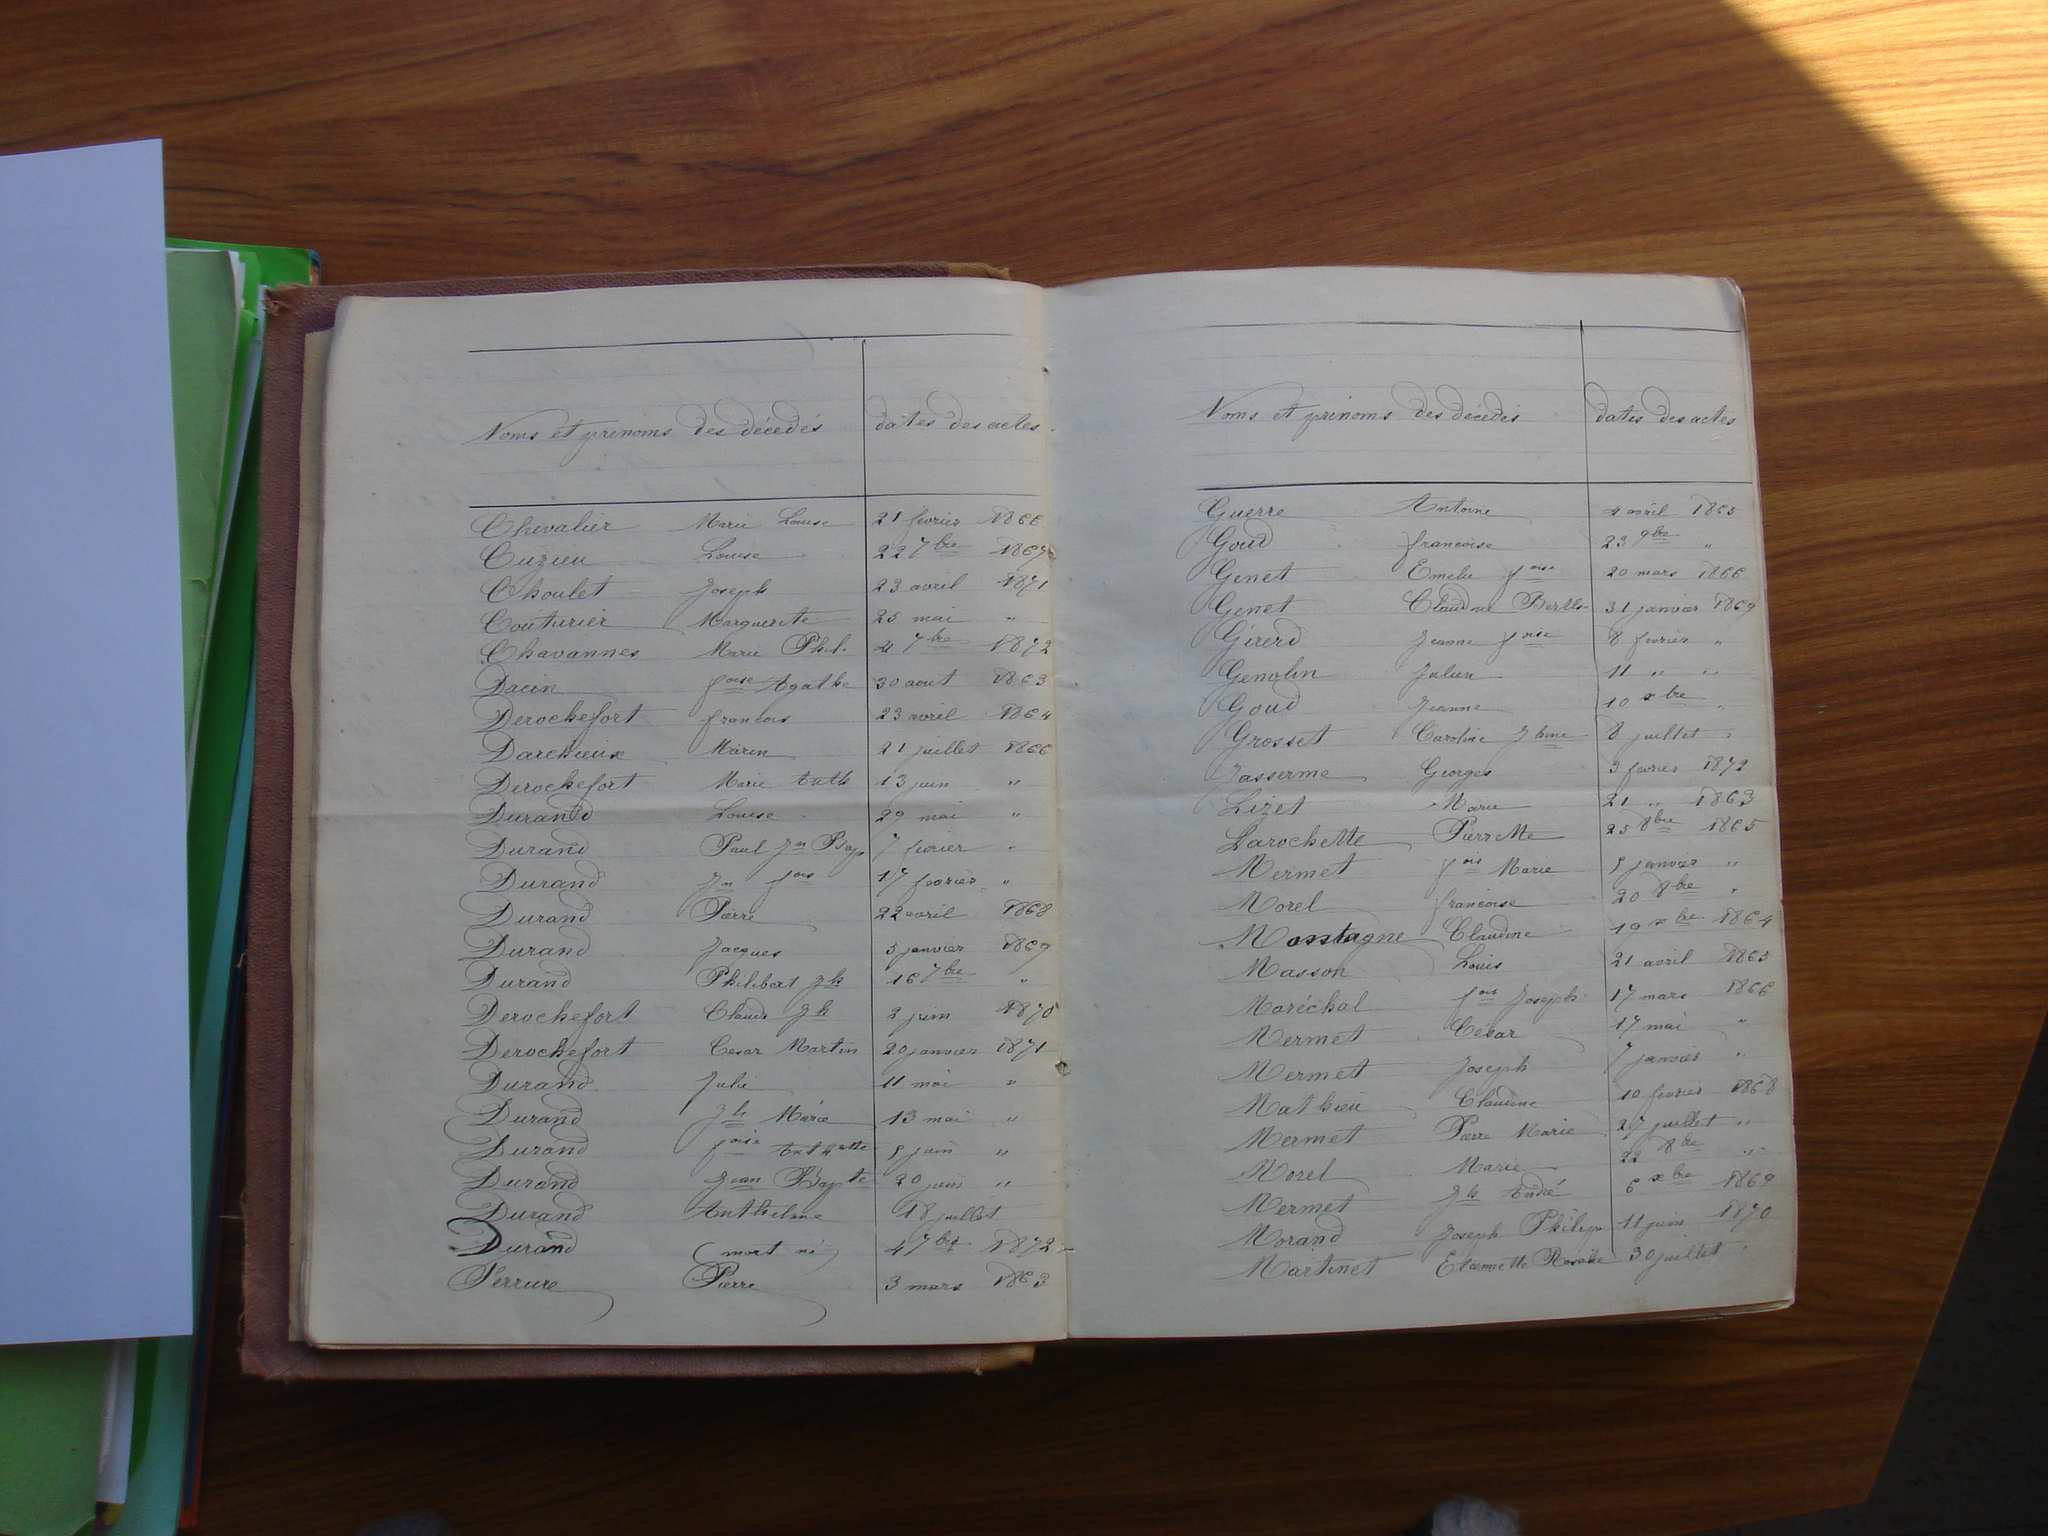 Noms et prénoms des décédés dates des actes
Chevalier Marie Louise 21 fevrier 1866
Cuzieu Louise 22 7bre 1869
Choulet Joseph 23 avril 1871
Couturier Marguerite 25 mai "
Chavannes Marie Phil. 4 7bre 1872
Dacin foise Agathe 30 aout 1863
Derochefort francois 23 avril 1864
Darchieux Marin 21 juillet 1866
Derochefort Marie Anth 13 juin "
Durand Louise 29 mai "
Durand Paul Jn Bap 7 fevrier "
Durand Jn fois 17 fevrier "
Durand Pierre 22 avril 1868
Durand Jacques 5 janvier 1869
Durand Philibert Jh 16 7bre "
Derochefort Claude Jh 2 juin 1870
Derochefort César Martin 20 janvier 1871
Durand Julie 11 mai "
Durand Jh Marie 13 mai "
Durand foise juin "
Durand Jean Bapte 20 juin "
Durand Anthelme 18 juillet
Durand (mort né) 4 7bre 1872
Ferrure Pierre 3 mars 1863
Noms et prénoms des décédés dates des actes
Guerre Antoine 4 avril 1865
Goud francoise 23 9bre "
Genet Emelie foise 20 mars 1866
Genet Claudine 31 janvier 1869
Girerd Jeanne foise 8 fevrier "
Genolin Julien 11 " "
Goud Jeanne 10 xbre "
Grosset Caroline 8 juillet "
Jasserme Georges 3 fevrier 1872
Lizet Marie 21 " 1863
Larochette Pierrette 25 8bre 1865
Mermet fois Marie janvier "
Morel francoise 20 8bre "
Montagne Claudine 19 xbre 1864
Masson Louis 21 avril 1865
Maréchal fois Joseph 17 mars 1866
Mermet César 17 mai "
Mermet Joseph 7 janvier "
Mathieu Claudine 10 fevrier 1868
Mermet Pierre Marie 27 juillet "
Morel Marie 22 8bre "
Mermet Jh André 6 xbre 1869
Morand Joseph Philipe 11 juin 1870
Martinet Etiennette 30 juillet "